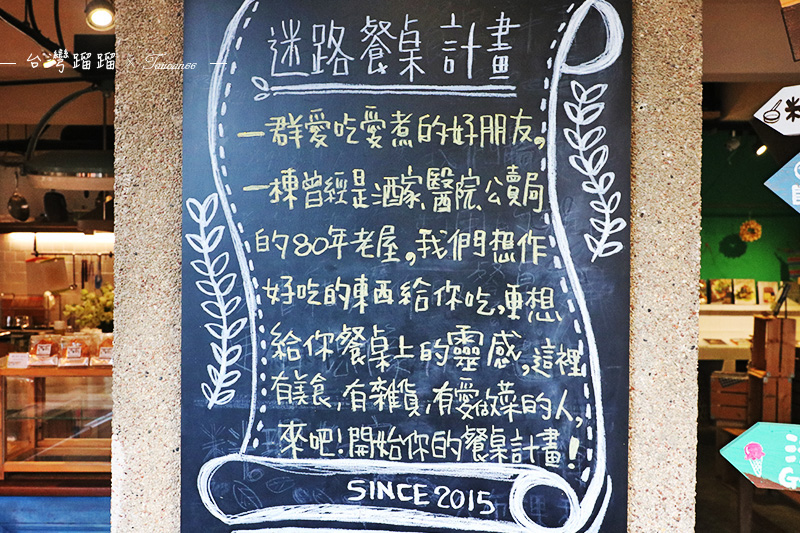 台灣蹓蹓 × Taiwan66
迷路餐桌計畫
一群愛吃愛煮的好朋友,
一棟曾經是酒家、醫院、公賣局
的80年老屋,我們想作
好吃的東西給你吃,更想
給你餐桌上的靈感,這裡
有美食,有雜貨,有愛做菜的人,
來吧!開始你的餐桌計畫!
SINCE 2015